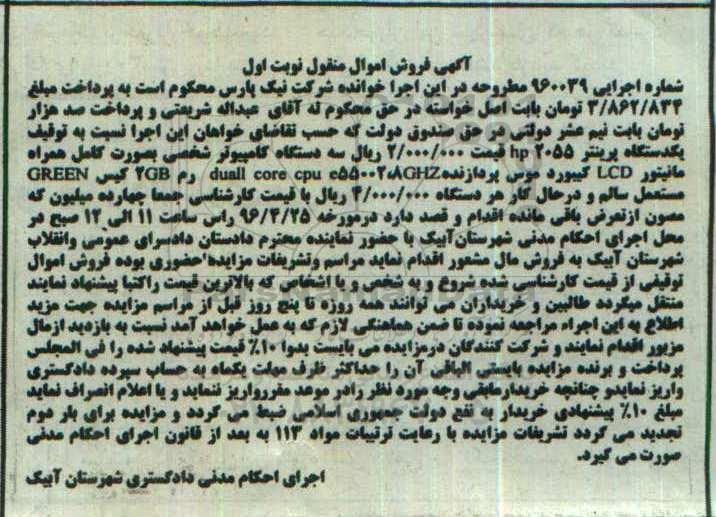 آگهی فروش اموال منقول نوبت اول
شماره اجرایی ۹۶۰۰۳۹ مطروحه در این اجرا خوانده شرکت نیک پارس محکوم است به پرداخت مبلغ
۳/۸۶۲/۸۳۴ تومان بابت اصل خواسته در حق محکوم له آقای عبداله شریعتی و پرداخت صد هزار
تومان بابت نیم عشر دولتی در حق صندوق دولت که حسب تقاضای خواهان این اجرا نسبت به توقیف
یکدستگاه پرینتر hp ۲۰۵۵ قیمت ۲/۰۰۰/۰۰۰ ریال سه دستگاه کامپیوتر شخصی بصورت کامل همراه
مانیتور LCD کیبورد موس پردازنده duall core cpu e5500 2.8GHZ رم 2GB کیس GREEN
مستعمل سالم و درحال کار هر دستگاه ۴/۰۰۰/۰۰۰ ریال با قیمت کارشناسی جمعا چهارده میلیون که
مصون ازتعرض باقی مانده اقدام و قصد دارد درمورخه ۹۶/۴/۲۵ راس ساعت ۱۱ الی ۱۲ صبح در
محل اجرای احکام مدنی شهرستان آبیک با حضور نماینده محترم دادستان دادسرای عمومی وانقلاب
شهرستان آبیک به فروش مال مشعور اقدام نماید مراسم وتشریفات مزایده حضوری بوده فروش اموال
توقیفی از قیمت کارشناسی شده شروع و به شخص و یا اشخاص که بالاترین قیمت راکتبا پیشنهاد نمایند
منتقل میگردد طالبین و خریداران می توانند همه روزه تا پنج روز قبل از مراسم مزایده جهت مزید
اطلاع به این اجراء مراجعه نموده تا ضمن هماهنگی لازم که به عمل خواهد آمد نسبت به بازدید ازمال
مزبور اقدام نمایند و شرکت کنندگان درمزایده می بایست بدوا ۱۰٪ قیمت پیشنهاد شده را فی المجلس
پرداخت و برنده مزایده بایستی الباقی آن را حداکثر ظرف مهلت یکماه به حساب سپرده دادگستری
واریز نمایدو چنانچه خریدارمابقی وجه مورد نظر رادر موعد مقررواریز ننماید و یا اعلام انصراف نماید
مبلغ ۱۰٪ پیشنهادی خریدار به نفع دولت جمهوری اسلامی ضبط می گردد و مزایده برای بار دوم
تجدید می گردد تشریفات مزایده با رعایت ترتیبات مواد ۱۱۳ به بعد از قانون اجرای احکام مدنی
صورت می گیرد.
اجرای احکام مدنی دادگستری شهرستان آبیک